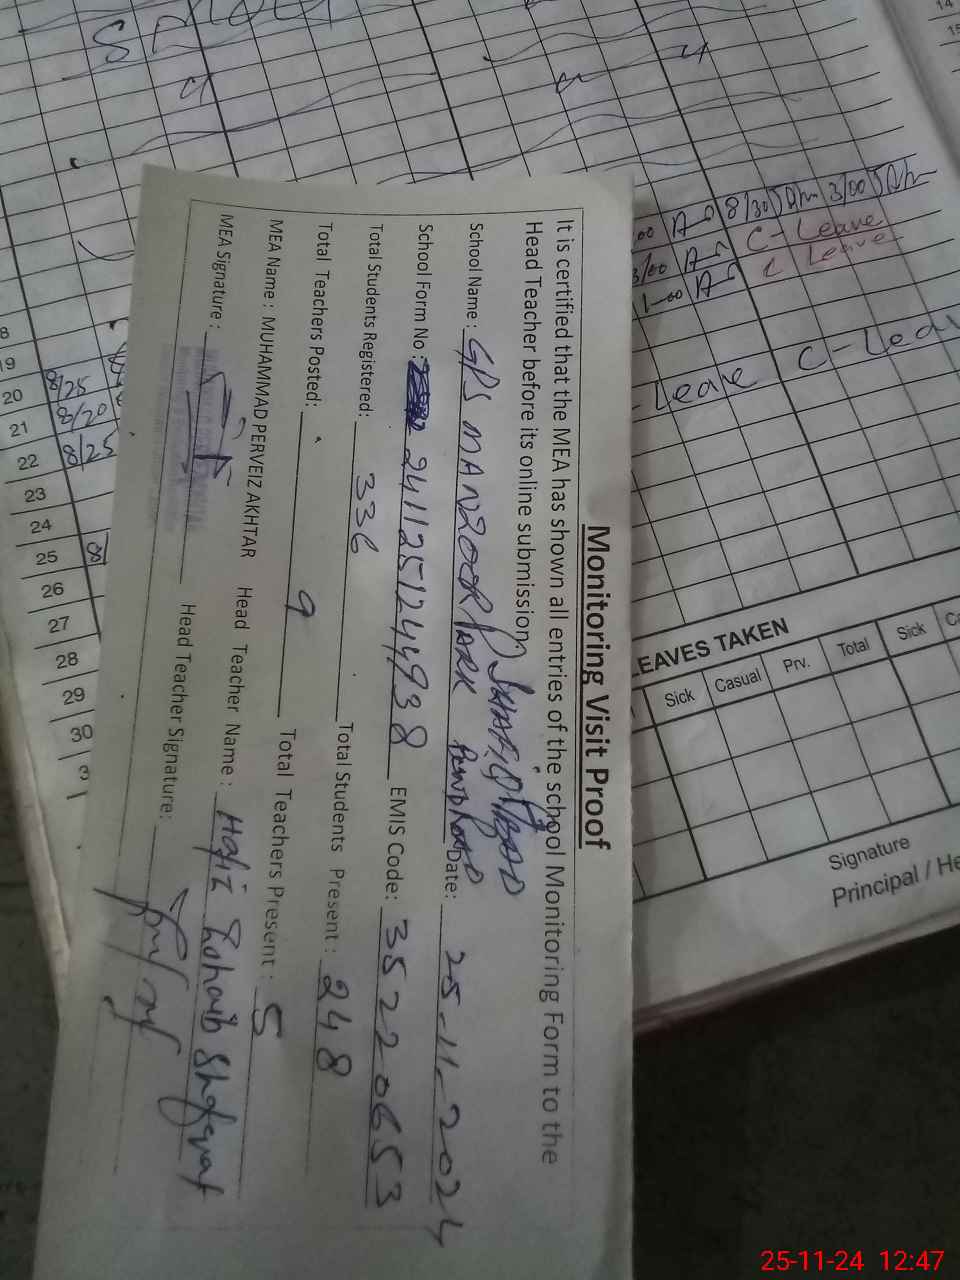 Monitoring Visit Proof
It is certified that the MEA has shown all entries of the school Monitoring Form to the
Head Teacher before its online submission.
School Name: GPS MANZOOR PARK SHARIQPUR ROAD Date: 25-11-2024
School Form No: 241125124938 EMIS Code: 35220653
Total Students Registered: 336 Total Students Present: 248
Total Teachers Posted: 9 Total Teachers Present: 5
MEA Name: MUHAMMAD PERVEIZ AKHTAR Head Teacher Name: Hafiz Zohaib Shafqat
MEA Signature: Head Teacher Signature:
8/30 3/00
C-Leave
Leave
3/00
1-00
Leave C-Lea
19
20 8/25
21 8/20
22 8/25
23
24
25
26
27
28
29
30
LEAVES TAKEN
Sick Casual Prv. Total Sick
Signature
Principal / He
14
15
25-11-24 12:47